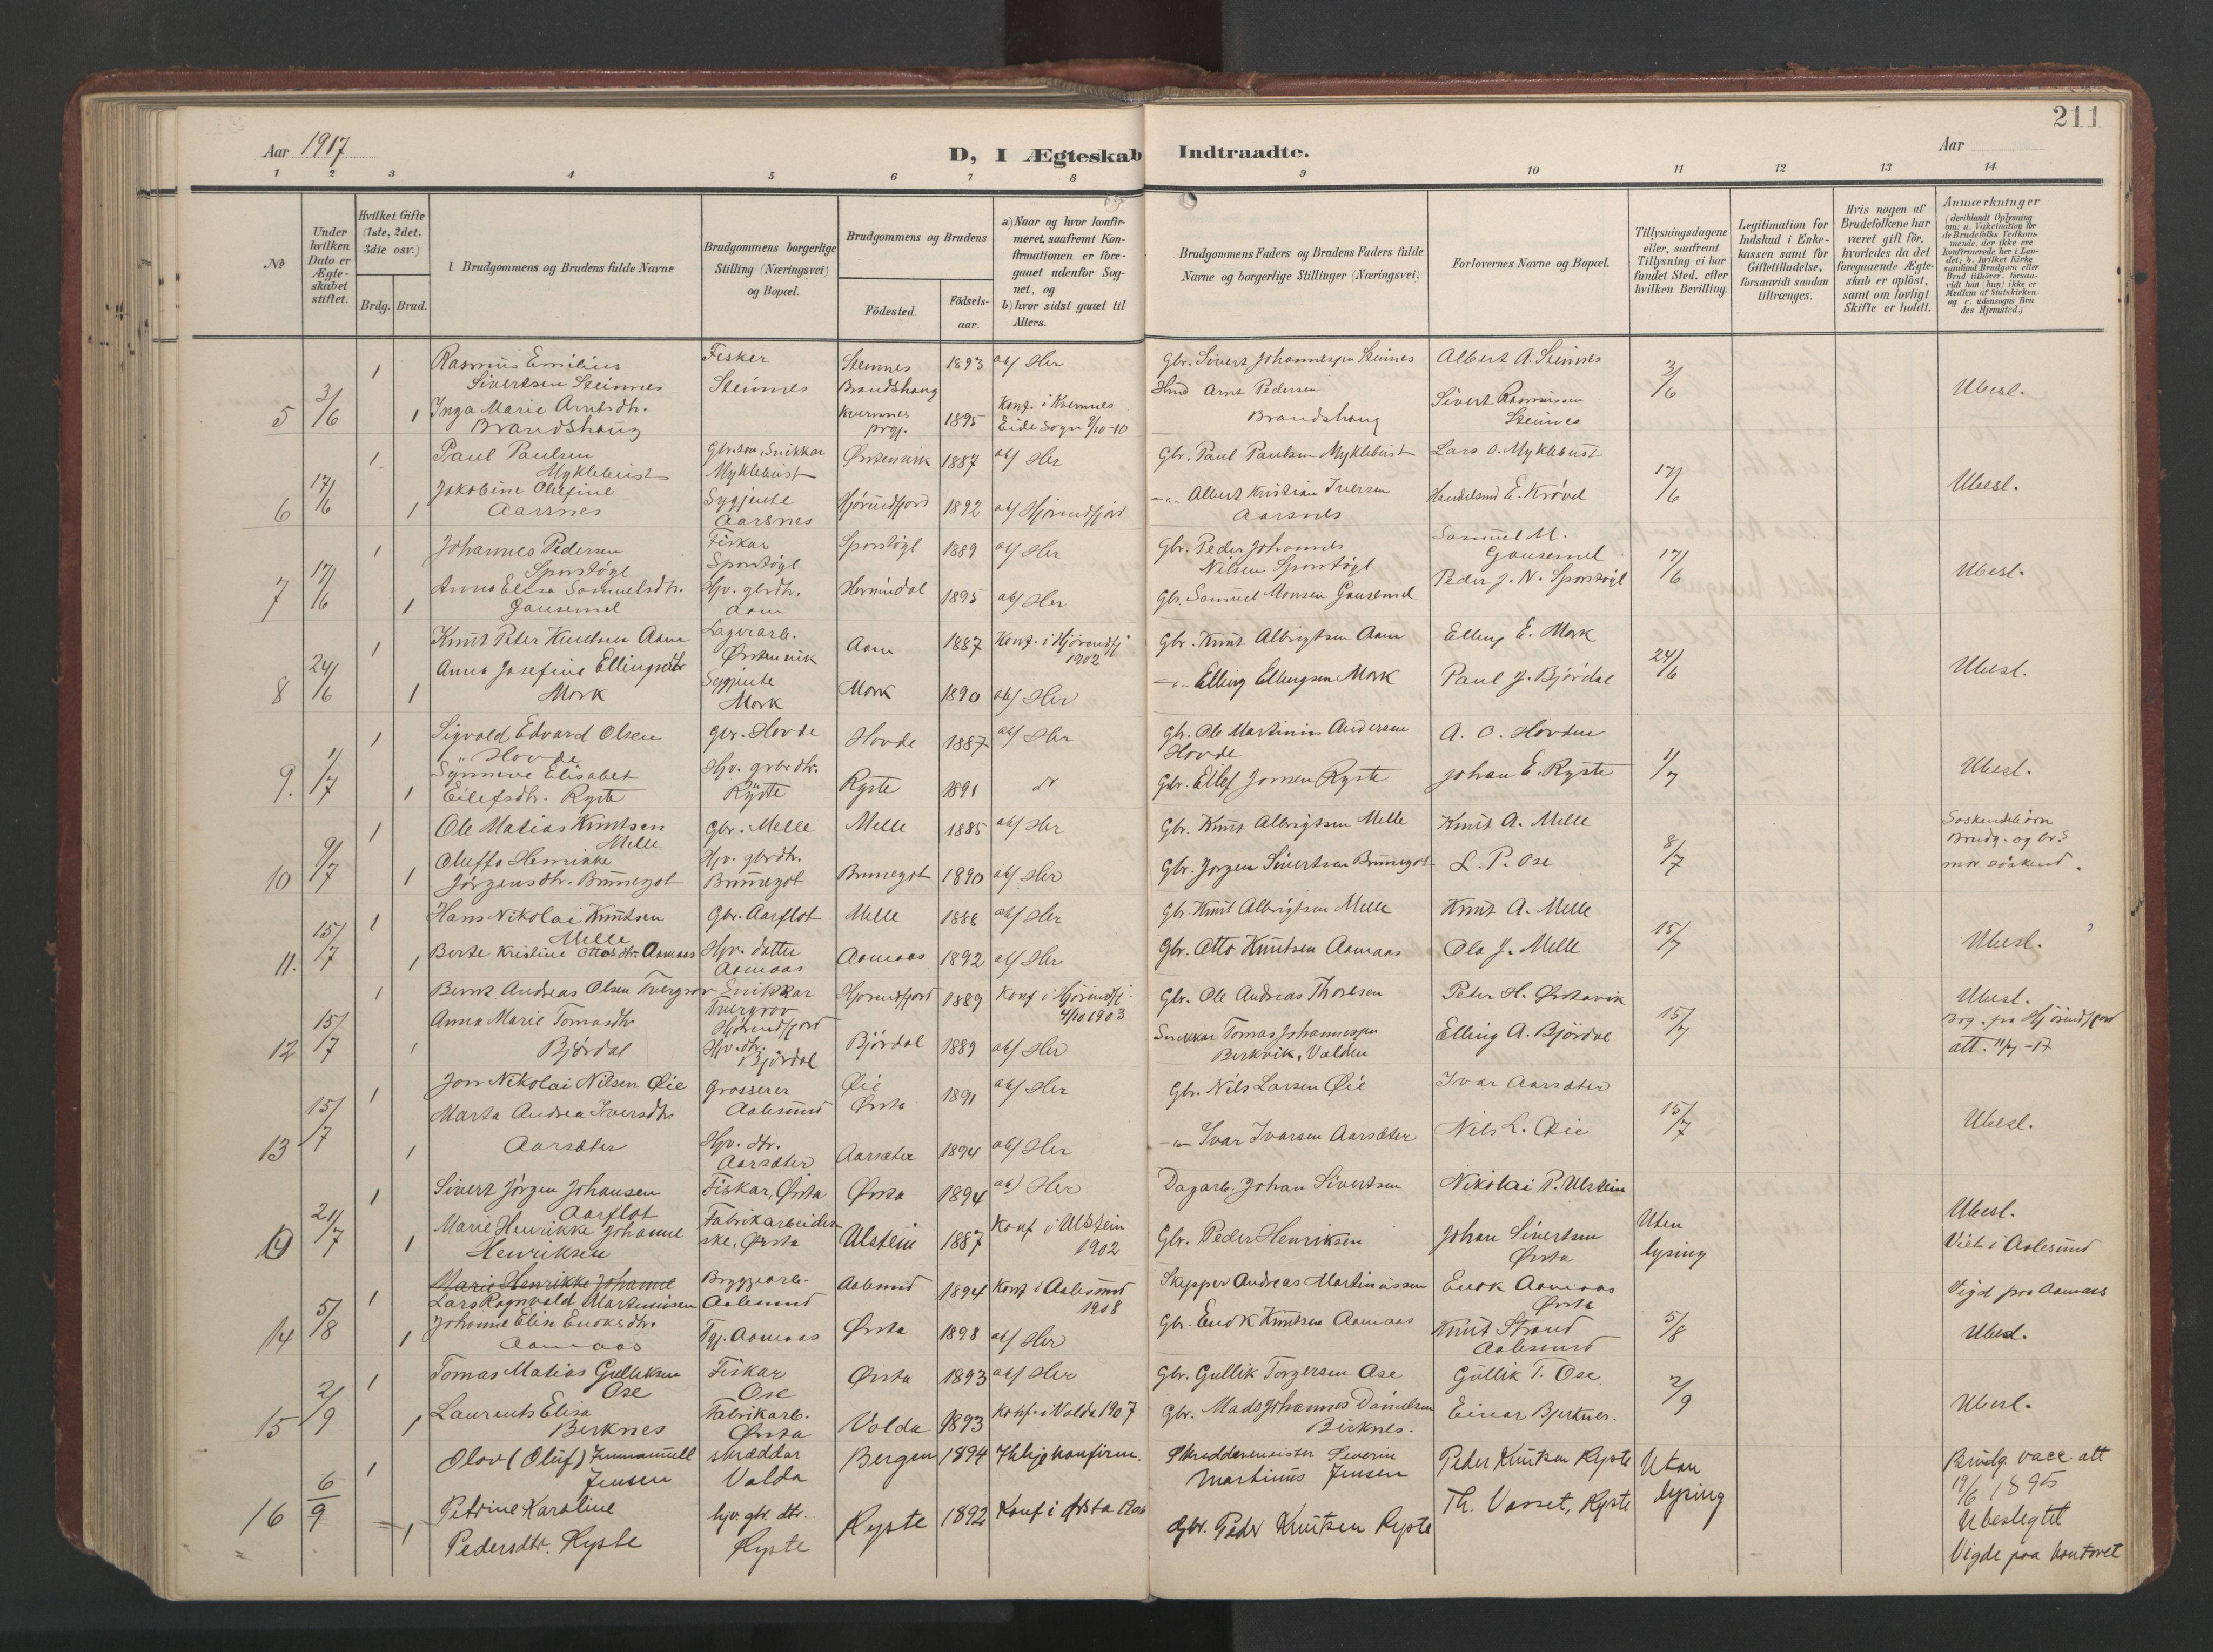 211
Aar 1917
D, I Ægteskab Indtraadte.
Aar
1 2 3 4 5 6 7 8 9 10 11 12 13 14
№
Under hvilken Dato er Ægteskabet stiftet.
Hvilket Gifte (1ste, 2det. 3die osv.)
Brdg. Brud.
Brudgommens og Brudens fulde Navne
Brudgommens borgerlige Stilling (Næringsvei) og Bopæl.
Brudgommens og Brudens
Födested.
Födsels-aar.
a) Naar og hvor konfirmeret, saafremt Konfirmationen er foregaaet udenfor Sognet, og
b) hvor sidst gaaet til Alters.
Brudgommens Faders og Brudens Faders fulde Navne og borgerlige Stillinger (Næringsvei)
Forlovernes Navne og Bopæl.
Tillysningsdagene eller, saafremt Tillysning ei har fundet Sted, efter hvilken Bevilling.
Legitimation for Indskud i Enkekassen samt for Giftetilladelse, forsaavidt saadan tiltrænges.
Hvis nogen af Brudefolkene har været gift för, hvorledes da det foregaaende Ægteskab er oplöst, samt om lovligt Skifte er holdt.
Anmærkninger
Rasmus Emilius Sivertsen Steinnes
Fisker Steinnes
Steinnes 1893 a b/ Her
Gbr. Sivert Johannessen Steinnes
Albert A. Steinnes
5 3/6 1 1
Inga Marie Arntsdtr. Brandshaug
Brandshaug Kvernnes prgj. 1895
Konf. i Kvernnes Eide Sogn 9/10-10
Arnt Pedersen Brandshaug
Sivert Rasmussen Steinnes
3/6
Ubesl.
6 17/6 1 1
Paul Paulsen Myklebust
Gbr.søn, Snikkar Myklebust
Ørstenvik 1887 ab/ Her
Gbr. Paul Paulsen Myklebust
Lars O. Myklebust
Jakobine Olufine Aarsnes
Sygjente Aarsnes
Hjørundfjord 1892 ab/ Hjørundfjord
-"- Albert Kristian Iversen Aarsnes
Handelsmd E. Krøvel
17/6
Ubesl.
7 17/6 1 1
Johannes Pedersen Sporstøyl
Fiskar Sporstøyl
Sporstøyl 1889 ab/ Her
Gbr. Peder Johannes Nilsen Sporstøyl
Samuel M. Gausemel
Anna Elisa Samuelsdtr. Gausemel
Hjv. gbrdtr. Aam
1895 ab/ Her
Gbr. Samuel Monsen Gausemel
Peder J. N. Sporstøyl
17/6
Ubesl.
8 24/6 1 1
Knut Peter Knutsen Aam
Lagerarb. Ørstenvik
Aam 1887 Konf. i Hjørundfj 1902
Gbr. Knut Albrigtsen Aam
Elling E. Mork
Anna Josefine Ellingsdtr Mork
Sygjente Mork
Mork 1890 ab/ Her
-"- Elling Ellingsen Mork
Paul J. Bjørdal
24/6
Ubesl.
9. 1/7 1 1
Sigvald Edvard Olsen Hovde
Gbr. Hovde
Hovde 1887 ab/ Her
Gbr. Ole Martinus Andersen Hovde
A. O. Hovden
Synneve Elisabet Eilefsdtr. Ryste
Hjv. gbrdtr. Ryste
Ryste 1891
Gbr. Eilef Jonsen Ryste
Johan E. Ryste
1/7
Ubesl.
10 9/7 1 1
Ole Matias Knutsen Melle
Gbr. Melle
Melle 1885 ab/ Her
Gbr. Knut Albrigtsen Melle
Knut A. Melle
Oluffa Henrikke Jørgensdtr. Brunegot
Hjv. gbrdtr. Brunegot
Brunegot 1890 ab/ Her
Gbr. Jørgen Sivertsen Brunegot
L. P. Ose
8/7
Søskendebørn Brudg. og br.s mor søskend.
11. 15/7 1 1
Hans Nikolai Knutsen Melle
Gbr. Aarflot
Melle 1886 ab/ Her
Gbr. Knut Albrigtsen Melle
Knut A. Melle
Berte Kristine Ottosdtr. Aamaas
Hjv. datter Aamaas
Aamaas 1892 ab/ Her
Gbr. Otto Knutsen Aamaas
Ola J. Melle
15/7
Ubesl.
12 15/7 1 1
Bernt Andreas Olsen Tvergrov
Snikkar Tvergrov Hjørundfjord
Hjørundfjord 1889 Konf i Hjørundfj. 4/10 1903
Gbr. Ole Andreas Thoresen
Peter H. Ørstavik
Anna Marie Tomasdtr Bjørdal
Hjv. dtr. Bjørdal
Bjørdal 1889 ab/ Her
Snekkar Tomas Johannessen Berkvik, Volden
Elling A. Bjørdal
15/7
Ubesl.
Brg. fra Hjørundfjord att. 11/7-17
13 15/7 1 1
Jon Nikolai Nilsen Øie
Grosserer Aalesund
Øie Ørsta 1891 ab/ Her
Gbr. Nils Larsen Øie
Ivar Aarsæter
Marta Andrea Iversdtr Aarsæter
Hjv. dtr. Aarsæter
Aarsæter 1894 ab/ Her
-"- Ivar Ivarsen Aarsæter
Nils L. Øie
15/7
Ubesl.
21/7 1 1
Sivert Jørgen Johansen Aarflot
Fiskar, Ørsta
Ørsta 1894 ab/ Her
Dagarb. Johan Sivertsen
Nikolai P. Ulstein
Marie Henrikke Johanne Henriksen
Fabrikarbeiderske, Ørsta
Ulstein 1887 Konf i Ulstein 1902
Gbr. Peder Henriksen
Johan Sivertsen Ørsta
Uten lysing
Ubesl.
Viet i Aalesund
14 5/8 1 1
Marie Henrikke Johanne
Lars Ragnvald Martinusen
Bryggearb. Aalesund
Aalesund 1894 Konf i Aalesund 1908
Skipper Andreas Martinussen
Enok Aamaas Ørsta
Johanne Elise Enoksdtr. Aamaas
Tgj. Aamaas
Ørsta 1898 ab/ Her
Gbr. Enok Knutsen Aamaas
Knut Strand Aalesund
5/8
Vigd paa Aamaas
Ubesl.
15 2/9 1 1
Tomas Matias Gulliksen Ose
Fiskar Ose
Ørsta 1893 ab/ Her
Gbr. Gullik Torgersen Ose
Gullik T. Ose
Laurents Elisa Berknes
Fabrikarb. Ørsta
Volda 1893 Konf. i Volda 1907
Gbr. Mads Johannes Danielsen Birknes.
Einar Bjerknes.
2/9
Ubesl.
16 6/9 1 1
Olav (Oluf) Immanuell Jensen
skræddar Volda
Bergen 1894 Ikkje konfirm.
Skreddermeister Severin Martinus Jensen
Peder Knutsen Ryste
Petrine Karoline Pedersdtr. Ryste
hjv. gbr. dtr. Ryste
Ryste 1892 Konf i Ørsta 1906
Gbr. Peder Knutsen Ryste
Th. Vasset, Ryste
Utan lysing
Brudg. vacc. att 19/6 1895
Ubeslegtet
Vigde paa kontoret